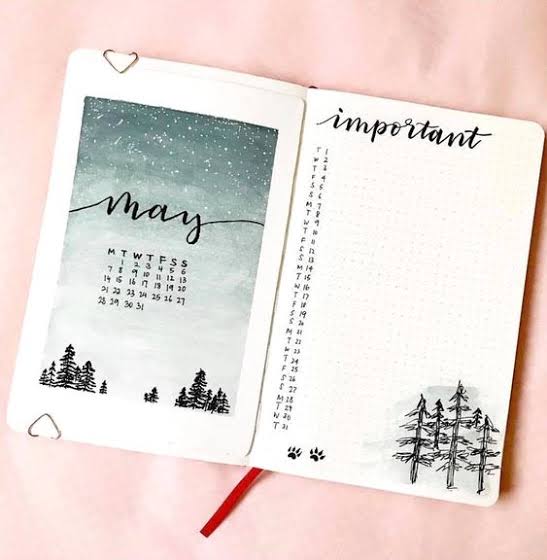 may
M T W T F S S
1 2 3 4 5 6
7 8 9 10 11 12 13
14 15 16 17 18 19 20
21 22 23 24 25 26 27
28 29 30 31
important
T 1
W 2
T 3
F 4
S 5
S 6
M 7
T 8
W 9
T 10
F 11
S 12
S 13
M 14
T 15
W 16
T 17
F 18
S 19
S 20
M 21
T 22
W 23
T 24
F 25
S 26
S 27
M 28
T 29
W 30
T 31